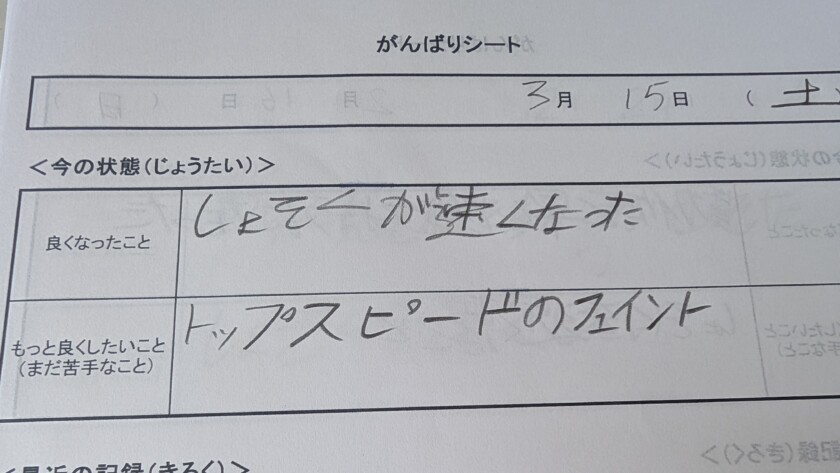 がんばりシート
3月 15日 (土)
<今の状態(じょうたい)>
良くなったこと
しょそくが速くなった
もっと良くしたいこと
(まだ苦手なこと)
トップスピードのフェイント
<最近の記録(きろく)>